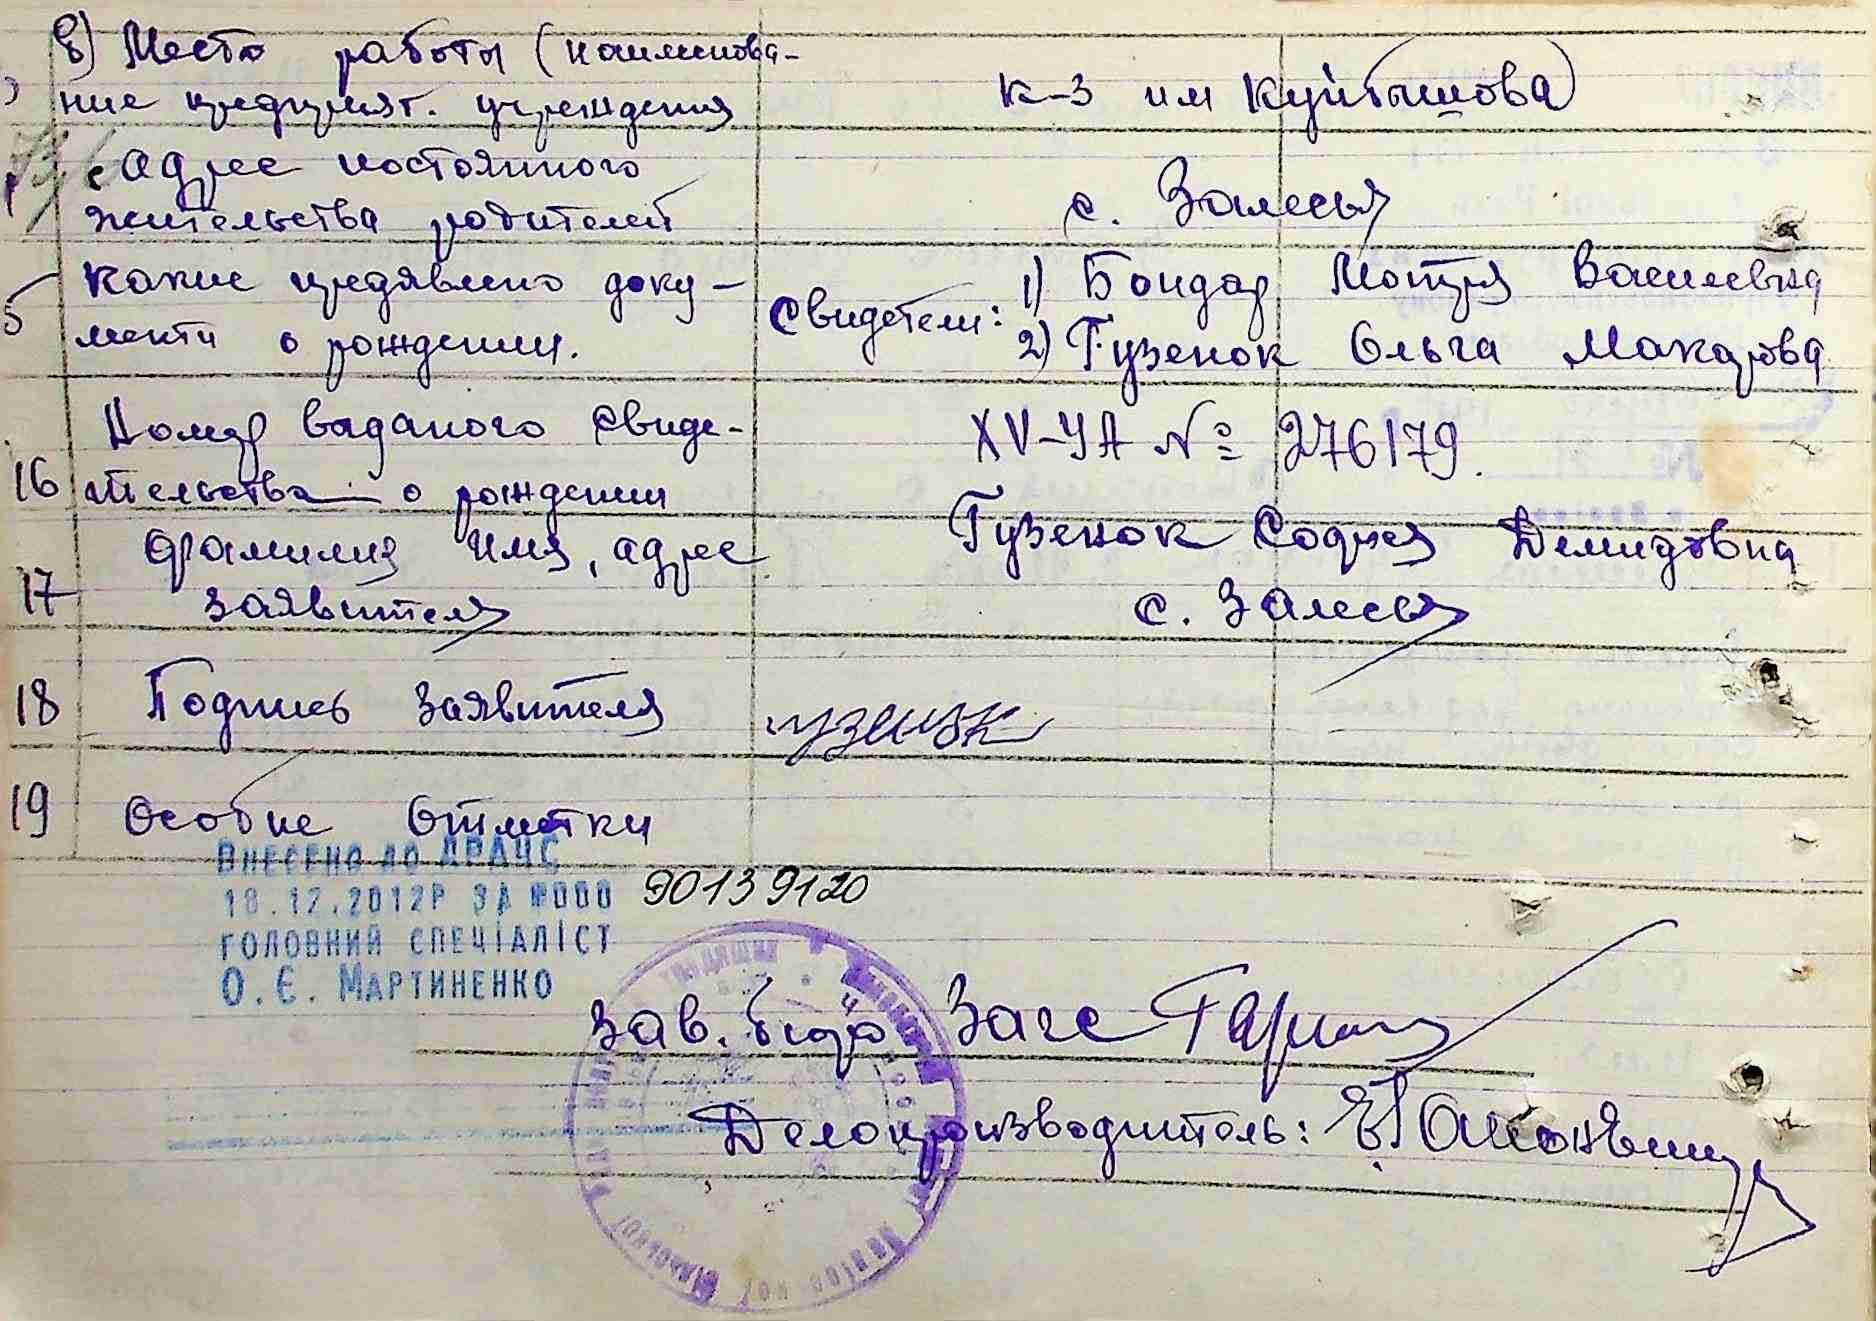 в) Место работы (наименова-
ние предприят. учреждения
к-з им Куйбышова)
Адрес постоянного
жительства родителей
с. Залесья
5 Какие предявлено доку-
менти о рождении.
Свидетели: 1) Бондар Мотря Василевна
2) Гузенок Ольга Макарова
16 Номер выданого свиде-
тельства о рождении
XV-УА № 276179.
17 Фамилия имя, адрес
заявителя
Гузенок Софья Демидовна
с. Залесья
18 Подпись заявителя
гузенок
19 Особие отметки
ВНЕСЕНО ДО ДРАЦС
18.12.2012Р ЗА №000 90139120
ГОЛОВНИЙ СПЕЦІАЛІСТ
О. Є. МАРТИНЕНКО
Зав. бюро Загс
Делопроизводитель: